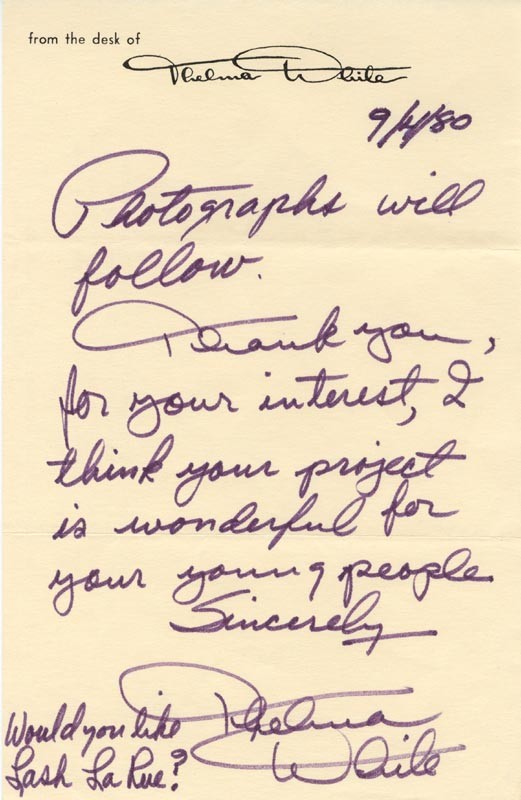 from the desk of
Thelma White
9/4/80
Photographs will
follow.
Thank you,
for your interest, I
think your project
is wonderful for
your young people
Sincerely
Thelma
White
Would you like
Lash La Rue?